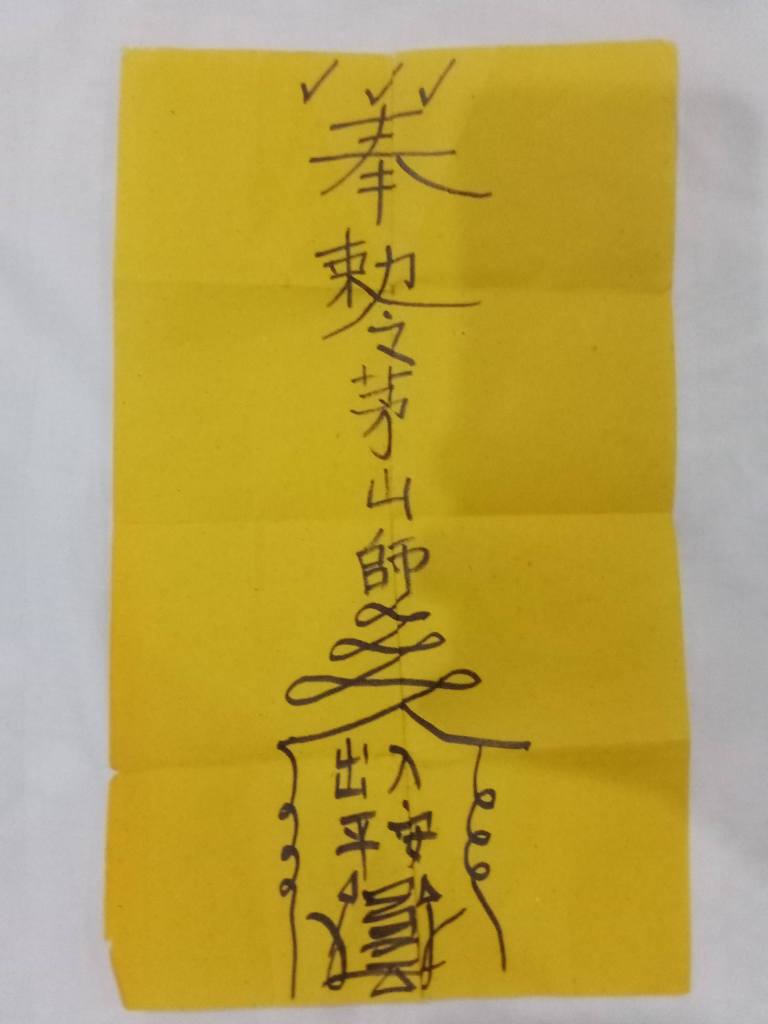 奉
勅
令
茅
山
師
出入
平安